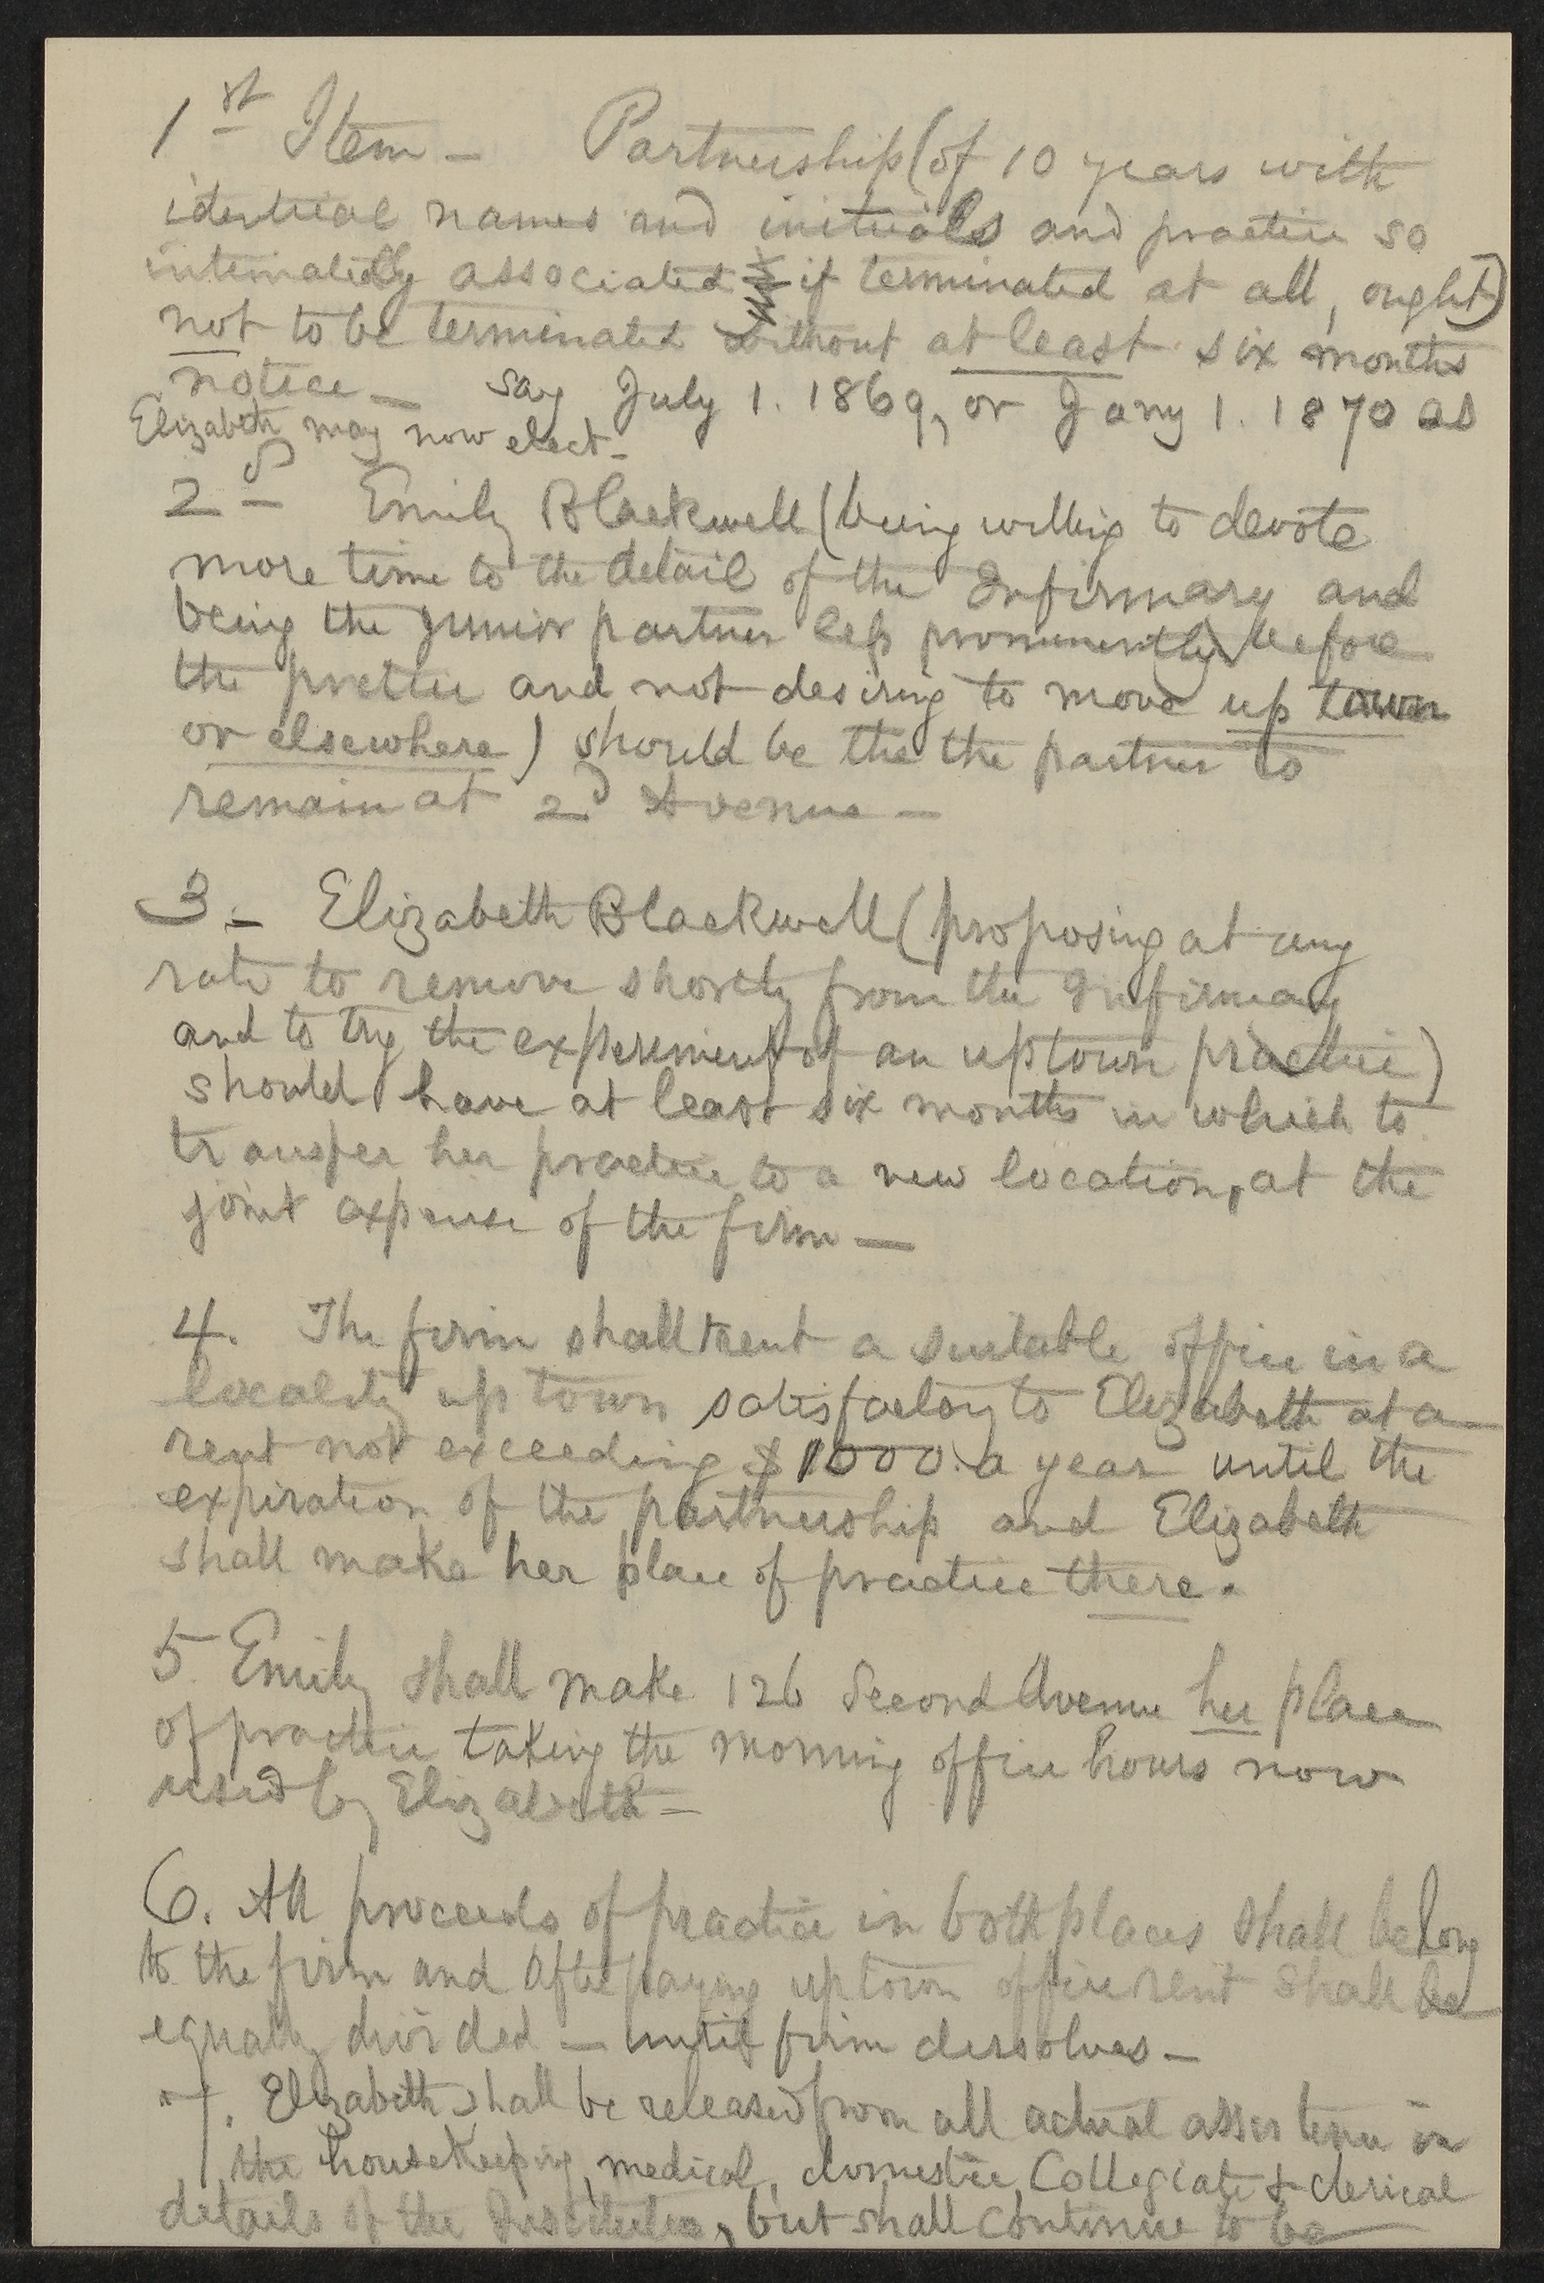 1st Item — Partnership (of 10 years with
identical names and initials and practice so
intimately associated if terminated at all, ought)
not to be terminated without at least six months
notice — say July 1. 1869, or Jany 1. 1870 as
Elizabeth may now elect —
2d — Emily Blackwell (being willing to devote
more time to the detail of the Infirmary and
being the junior partner less prominently before
the practice and not desiring to move up town
or elsewhere) should be the the partner to
remain at 2d Avenue —
3. — Elizabeth Blackwell (proposing at any
rate to remove shortly from the Infirmary
and to try the experiment of an uptown practice)
should have at least six months in which to
transfer her practice to a new location, at the
joint expense of the firm —
4. The firm shall rent a suitable office in a
locality up town satisfactory to Elizabeth at a
rent not exceeding $1000. a year until the
expiration of the partnership and Elizabeth
shall make her place of practice there.
5 Emily shall make 126 Second Avenue her place
of practice taking the morning office hours now
used by Elizabeth —
6. All proceeds of practice in both places shall belong
to the firm and after paying uptown office rent shall be
equally divided — until firm dissolves —
7. Elizabeth shall be released from all actual assistence in
the housekeeping, medical, domestic, Collegiate & clerical
details of the Institution, but shall continue to be